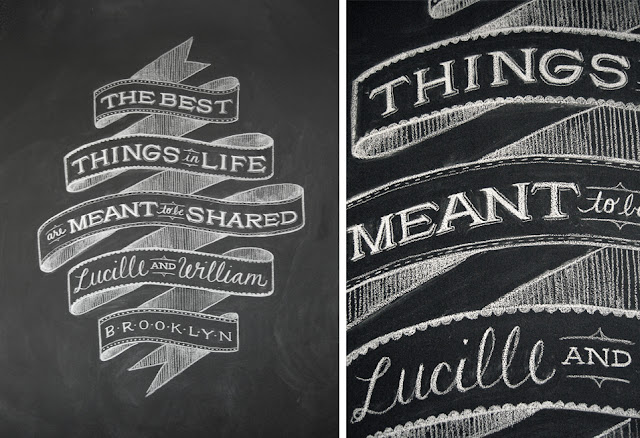 THE BEST
THINGS in LIFE
are MEANT to be SHARED
Lucille AND William
B·R·O·O·K·L·Y·N
THINGS
MEANT to be
Lucille AND